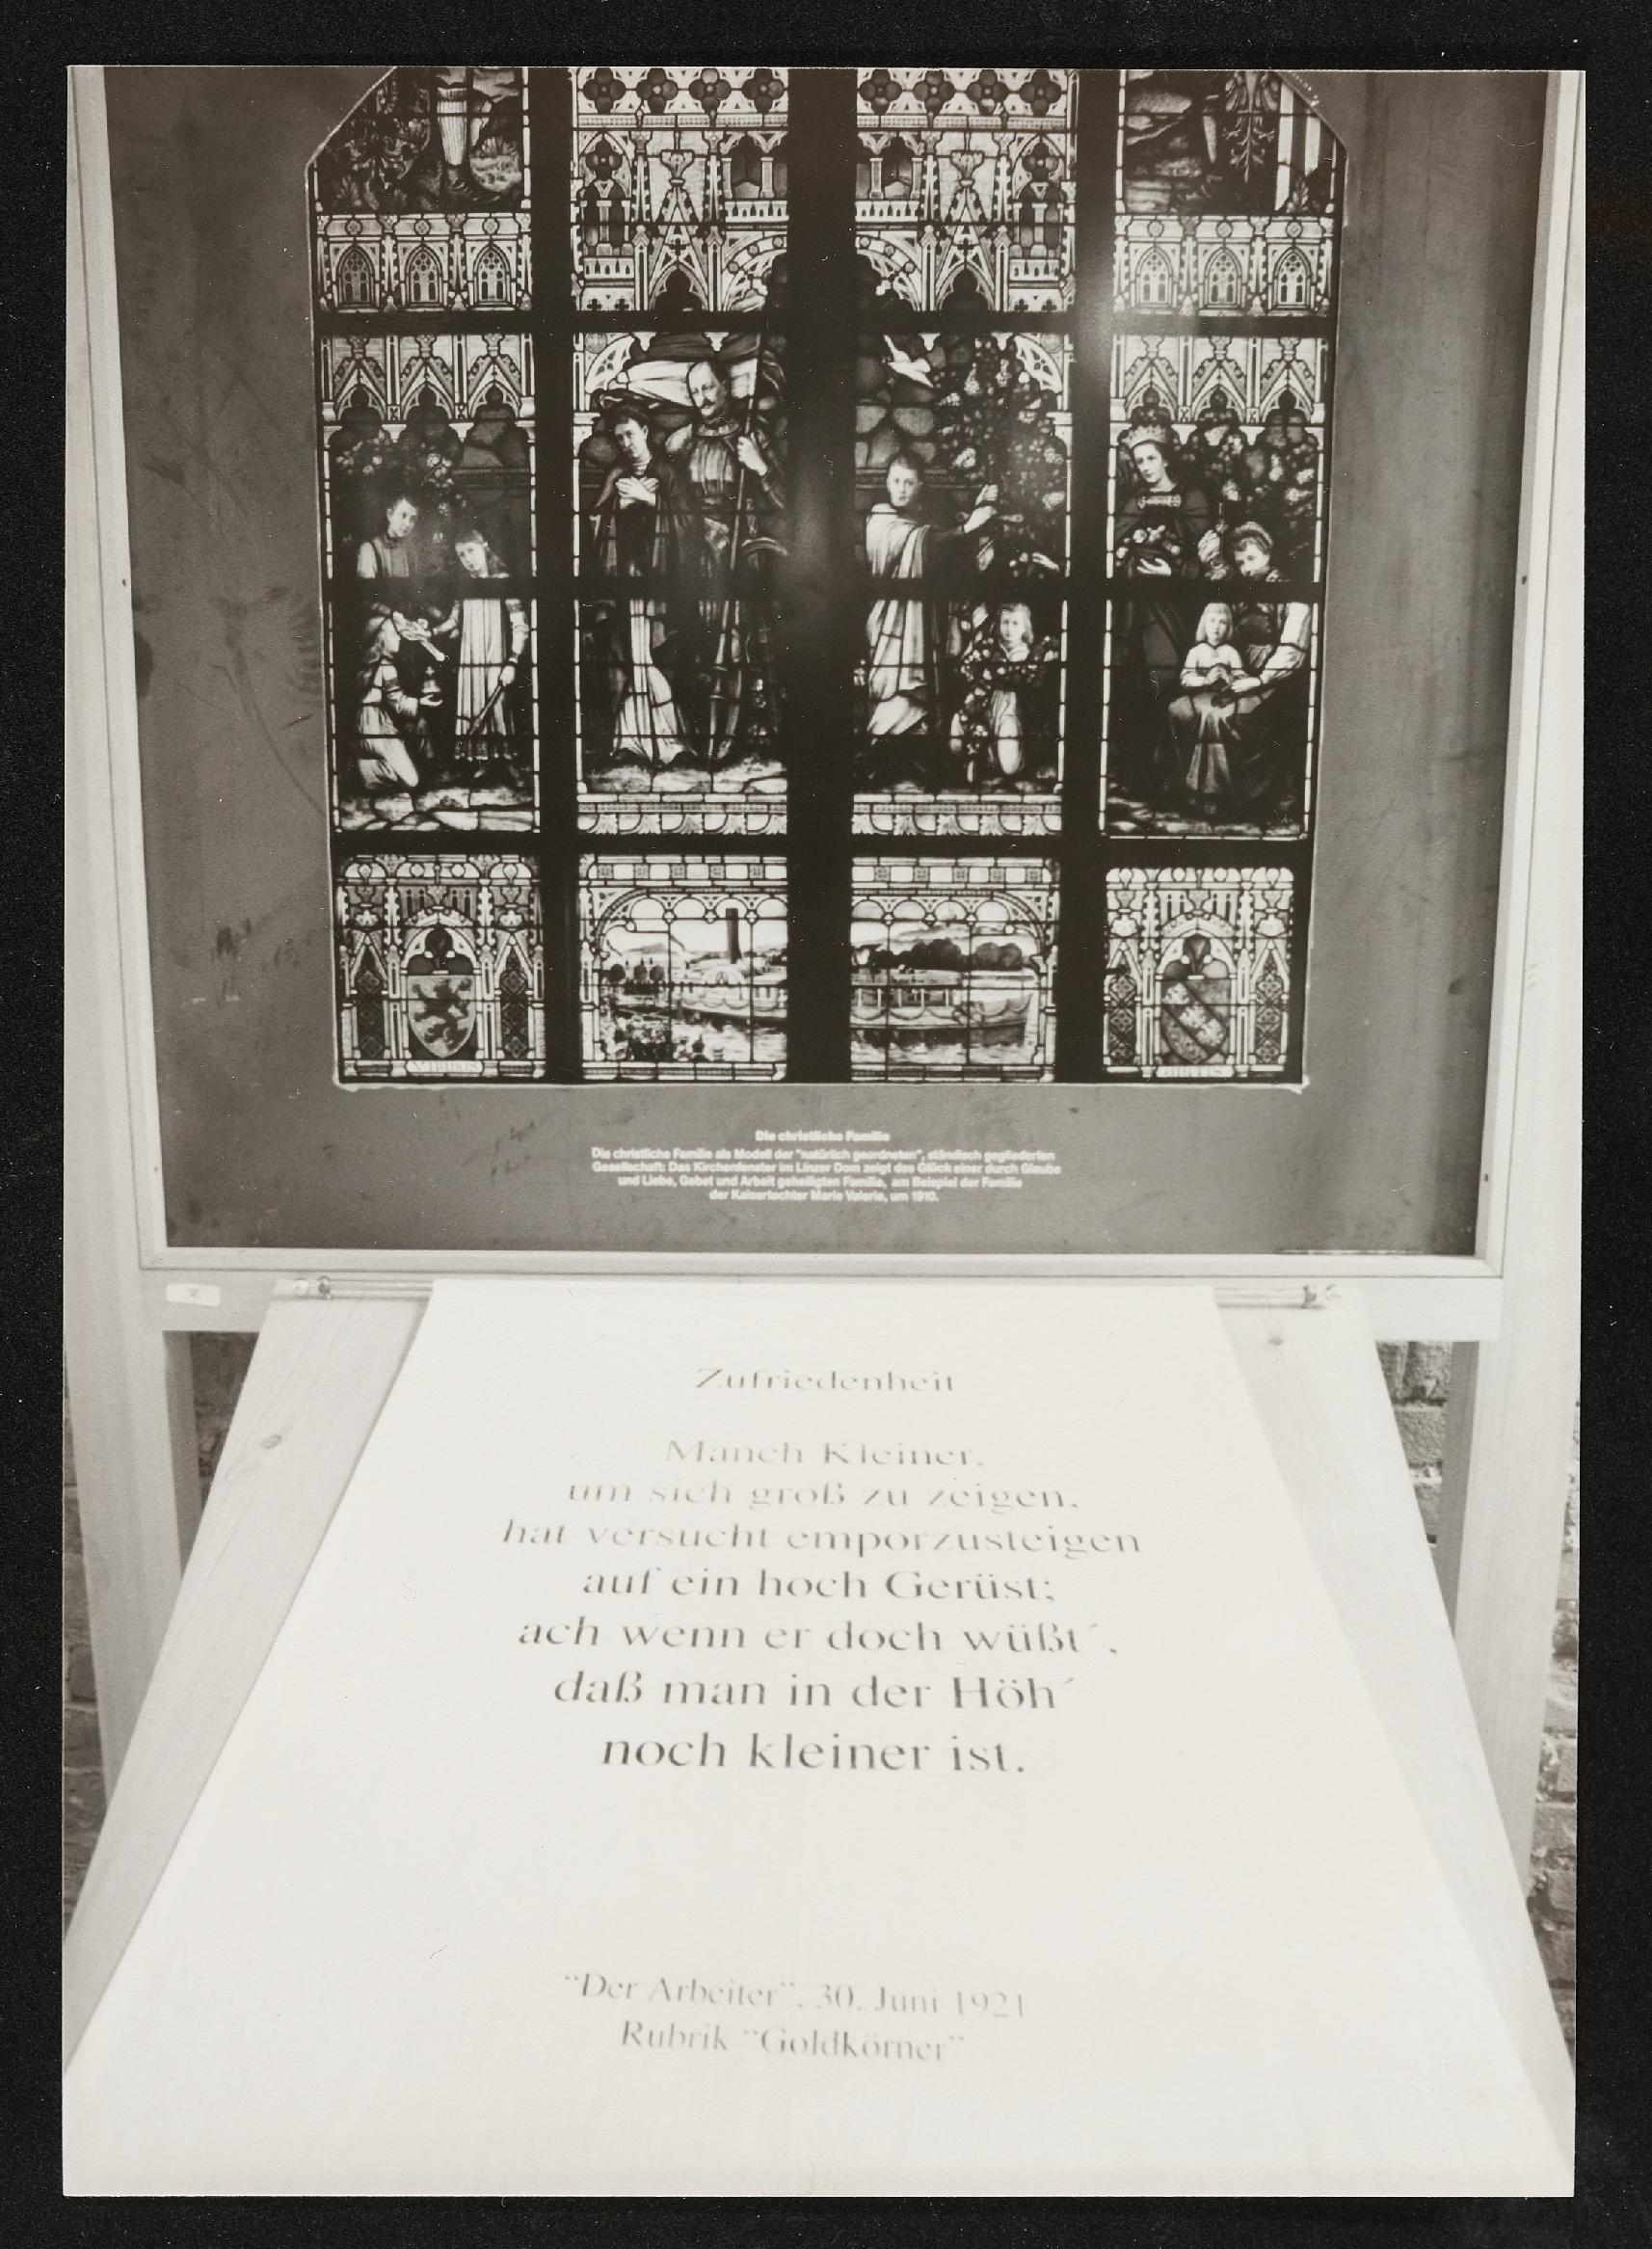 Die christliche Familie
Die christliche Familie als Modell der "natürlich geordneten", ständisch gegliederten
Gesellschaft: Das Kirchenfenster im Linzer Dom zeigt das Glück einer durch Glaube
und Liebe, Gebet und Arbeit geheiligten Familie, am Beispiel der Familie
der Kaisertochter Marie Valerie, um 1910.
Zufriedenheit
Manch Kleiner,
um sich groß zu zeigen,
hat versucht emporzusteigen
auf ein hoch Gerüst;
ach wenn er doch wüßt´,
daß man in der Höh´
noch kleiner ist.
“Der Arbeiter”, 30. Juni 1921
Rubrik “Goldkörner”